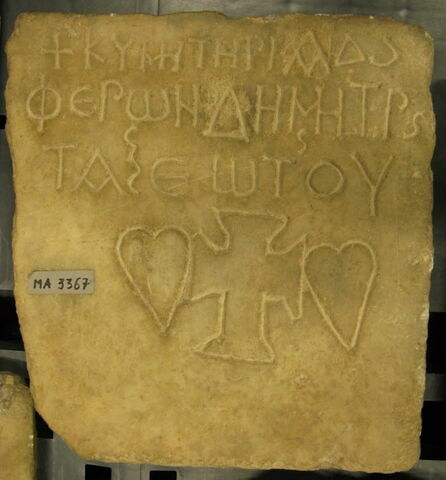 + ΚΥΜΗΤΗΡΙ
ΦΕΡΩΝ ΔΗΜΗΤΡS
ΤΑΞΕΩΤΟΥ
MA 3367